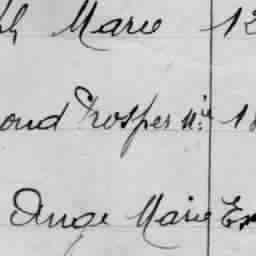 Marie 12
ond Prosper Mie 18
Ange Marie